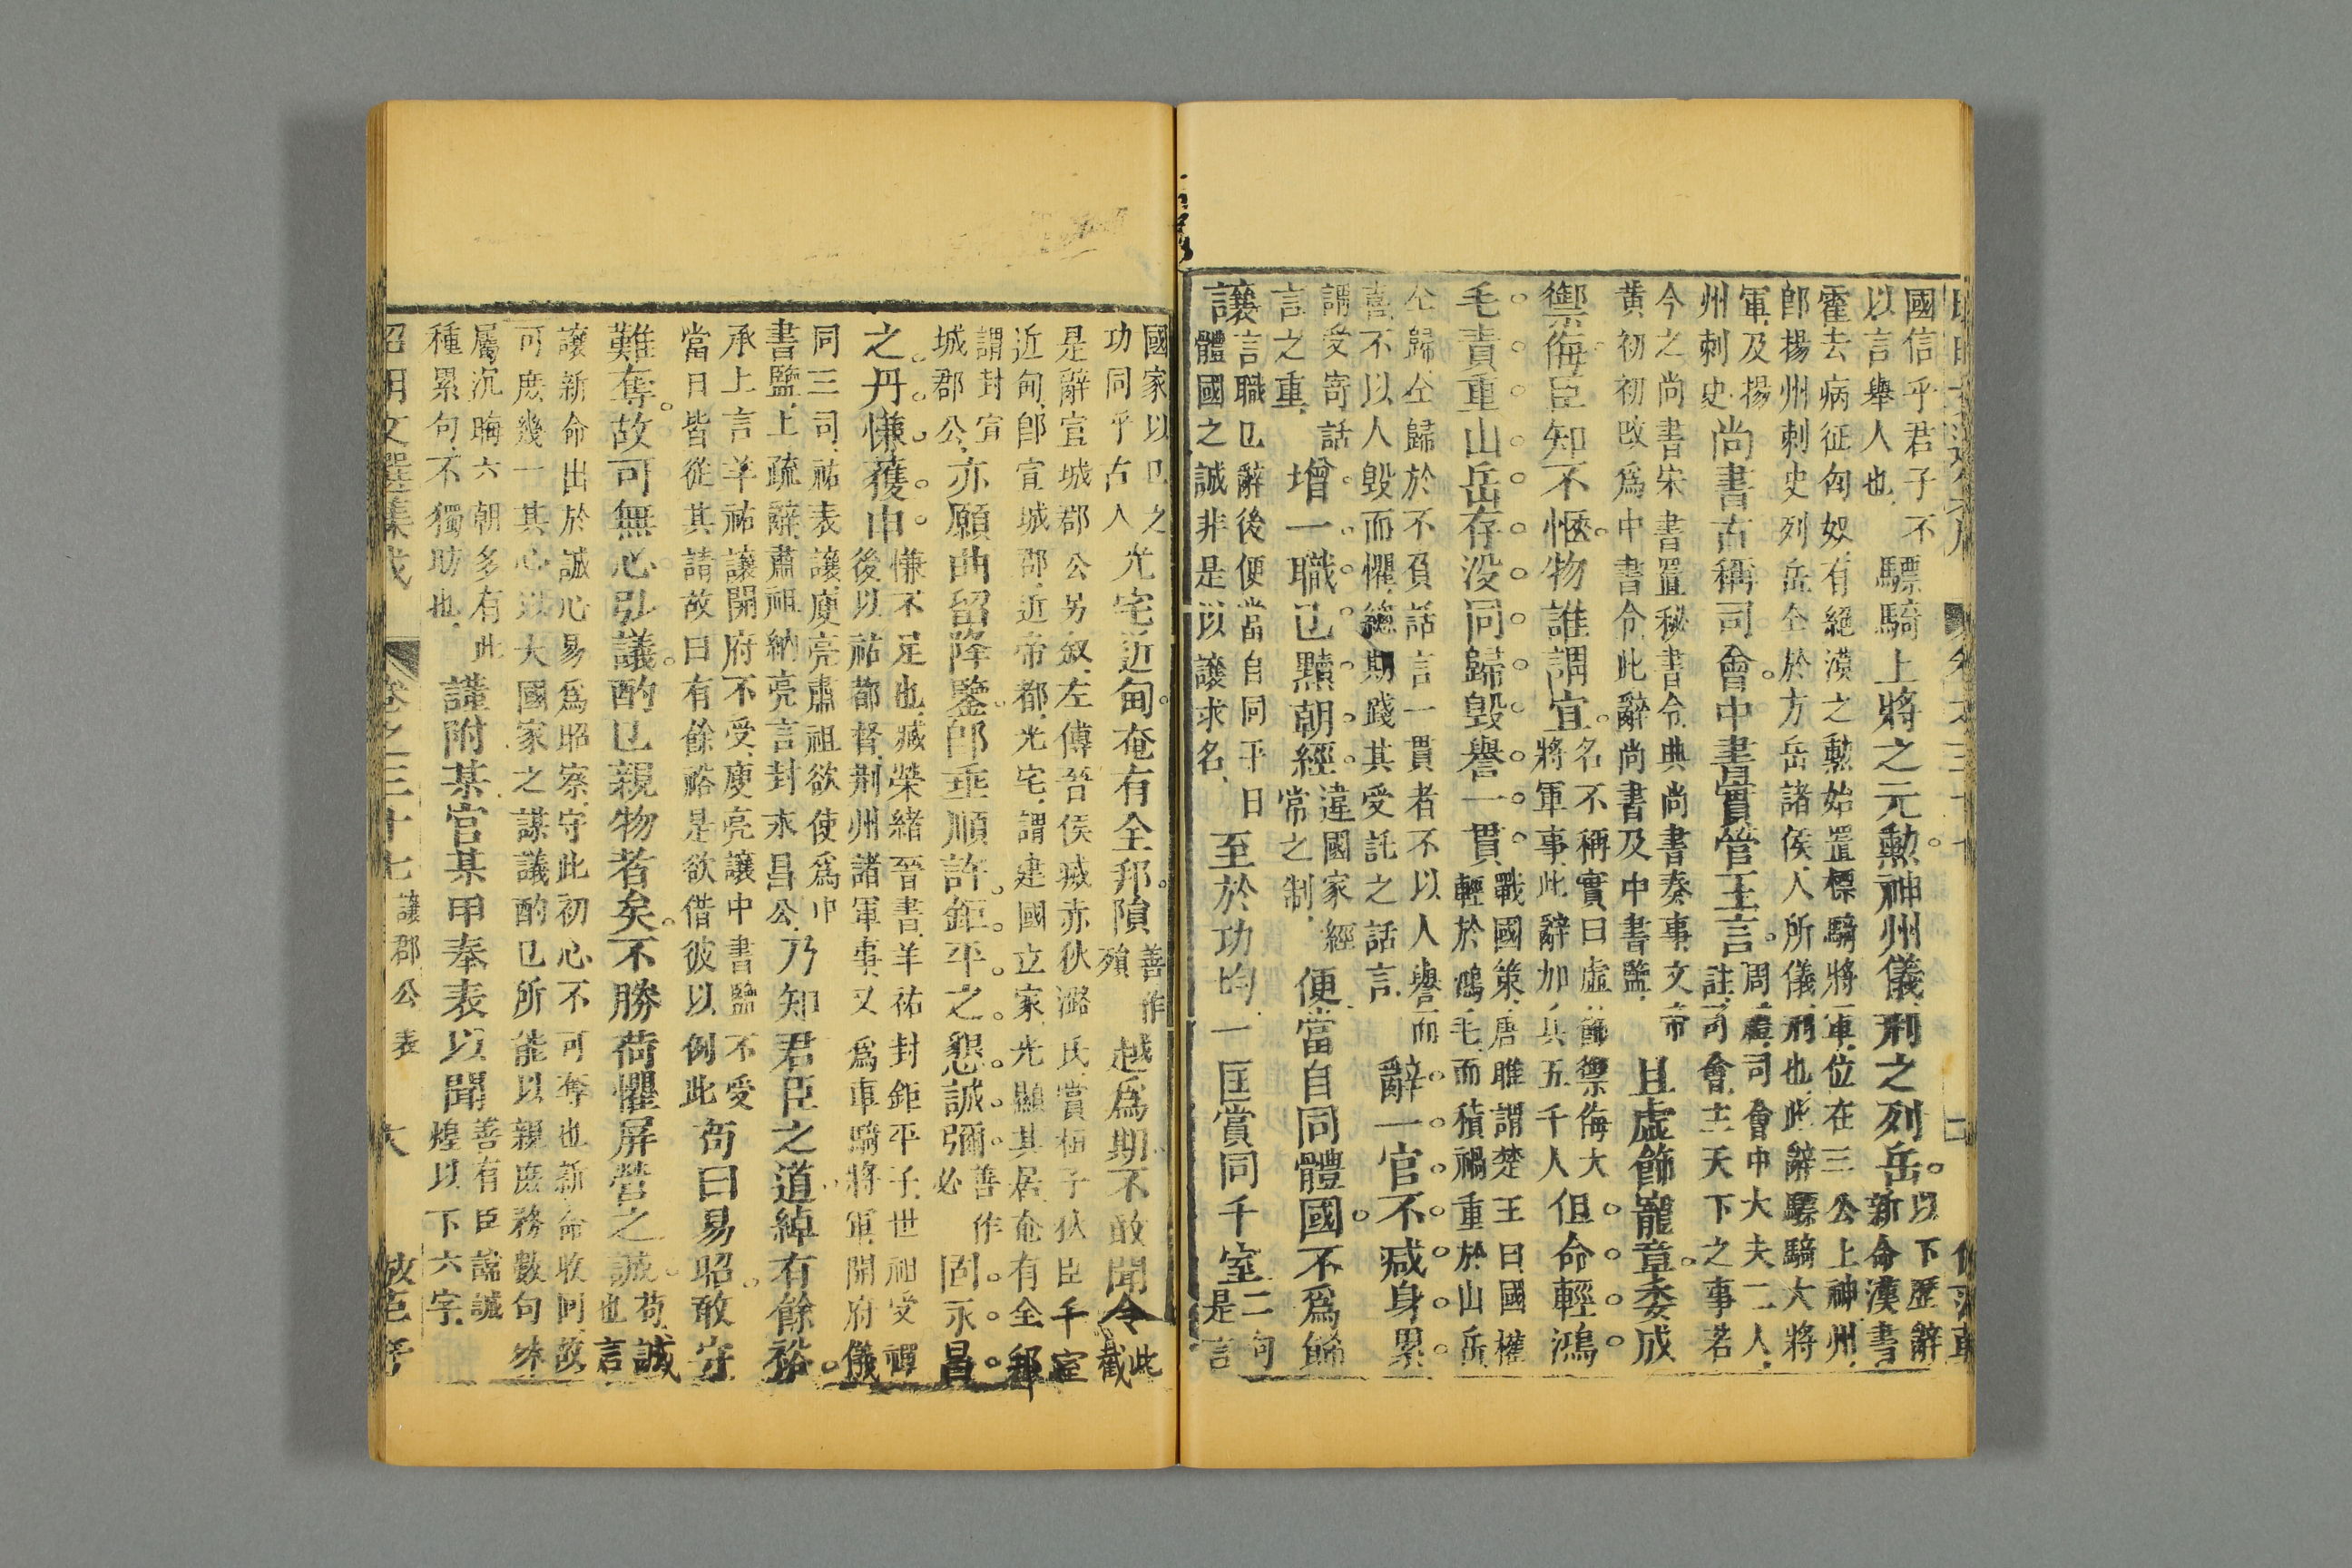 國信乎君子不
以言舉人也
驃騎上將之元勳神州儀刑之列岳
以下歷辭
新命漢書
霍去病征匈奴有絕漠之勲始置標騎將軍位在三公上神州
郎揚州刺史列岳仝於方岳諸侯人所儀刑也此辭驃騎大將
軍及揚
州刺史
尚書古稱司會中書實管王言
周禮司會中大夫二人
註司會主天下之事若
今之尚書宋書置秘書令典尚書奏事文帝
黄初初改爲中書令此辭尚書及中書監
且虛飾寵章委成
禦侮臣知不愜物誰謂宜
名不稱實曰虛飾禦侮大
將軍事此辭加兵五千人
但命輕鴻
毛責重山岳存没同歸毁譽一貫
戰國策唐雎謂楚王曰國權
輕於鴻毛而積禍重於山岳
仝歸仝歸於不負話言一貫者不以人譽而
喜不以人毁而懼總期踐其受託之話言
辭一官不减身累
謂受寄話
言之重
增一職已黷朝經
違國家經
常之制
便當自同體國不爲飾
讓
言職已辭後便當自同平日
體國之誠非是以讓求名
至於功均一匡賞同千室
二句
是言
國家以已之
功同乎古人
光宅近甸奄有全邦隕
善作
殞
越爲期不敢聞令
此
截
是辭宣城郡公另叙左傳晉侯滅赤狄潞氏賞桓子狄臣千室
近甸卽宣城郡近帝都光宅謂建國立家光顯其居奄有全邦
謂封宣
城郡公
亦願曲留降鑒卽垂順許鉅平之懇誠彌
善作
必
固永昌
之丹慊獲申
慊不足也臧榮緒晉書羊祜封鉅平子世祖受禪
後以祜都督荆州諸軍事又爲車騎將軍開府儀
同三司祜表讓庾亮肅祖欲使爲中
書監上疏辭肅祖納亮言封永昌公
乃知君臣之道綽有餘裕
承上言羊祜讓開府不受庾亮讓中書監不受
當日皆從其請故曰有餘裕是欲借彼以例此
苟曰易昭敢守
難奪故可無心弘議酌已親物者矣不勝荷懼屏營之誠
苟誠
也言
讓新命出於誠心易爲昭察守此初心不可奪也新命收回故
可庶幾一其心以大國家之謀議酌已所能以親庶務數句殊
屬沉晦六朝多有此
種累句不獨昉也
謹附某官某甲奉表以聞
善有臣諠誠
煌以下六字
昭明文選集成
卷之三十七
讓郡公表
大